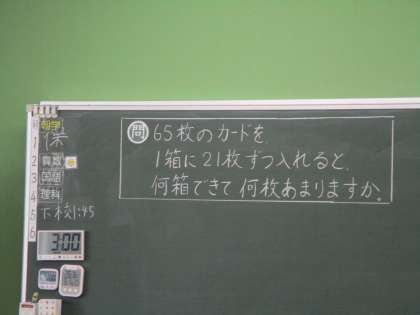 問 65枚のカードを、
1箱に21枚ずつ入れると、
何箱できて何枚あまりますか。
朝学
1
2 算数
3 国語
4 理科
5 下校1:45
6
3:00